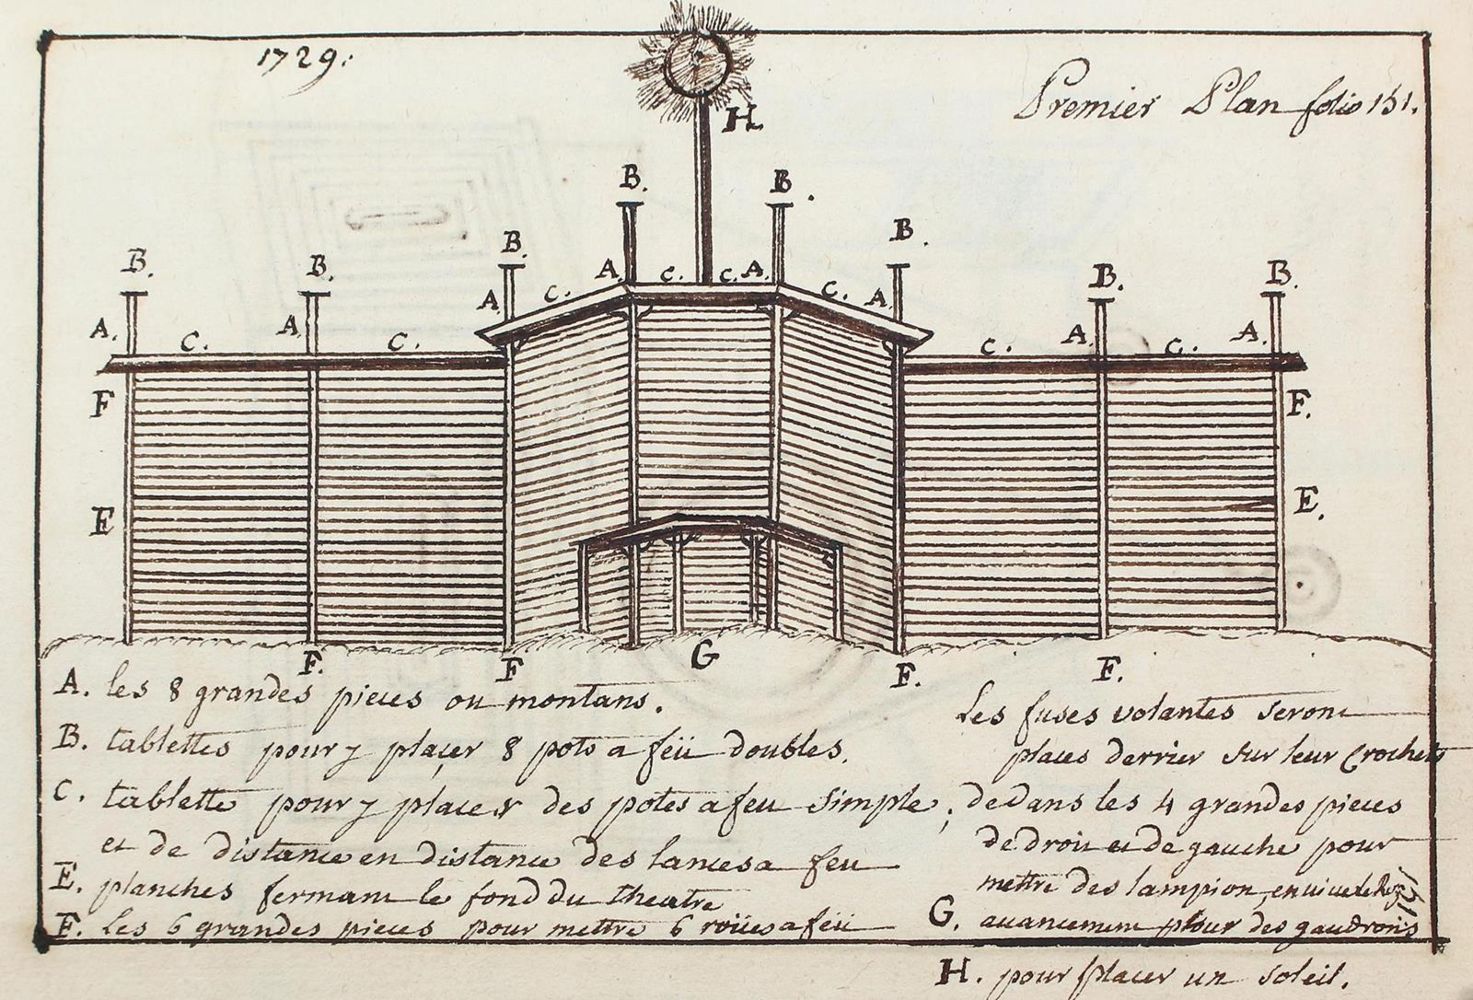 1729:
Premier Plan folio 151.
H.
B. B.
B. B. B. B. B. B.
A. C. C. A.
A. C. C. A.
A. C. A. C. A. C. A. C.
F F.
E E.
F. F G F. F.
A. les 8 grandes pieces ou montans.
B. tablettes pour y plaçer 8 pots a feü doubles.
C. tablette pour y placer des potes a feu simple;
et de distance en distance des lances a feu
E. planches fermant le fond du theatre
F. les 6 grandes pieces pour mettre 6 roües a feü
Les fuses volantes seront
places derrier sur leur Crochets
dedans les 4 grandes pieces
de droit et de gauche pour
mettre des lampion,
G. avancement pour des gaudrons
151
H. pour placer un soleil.